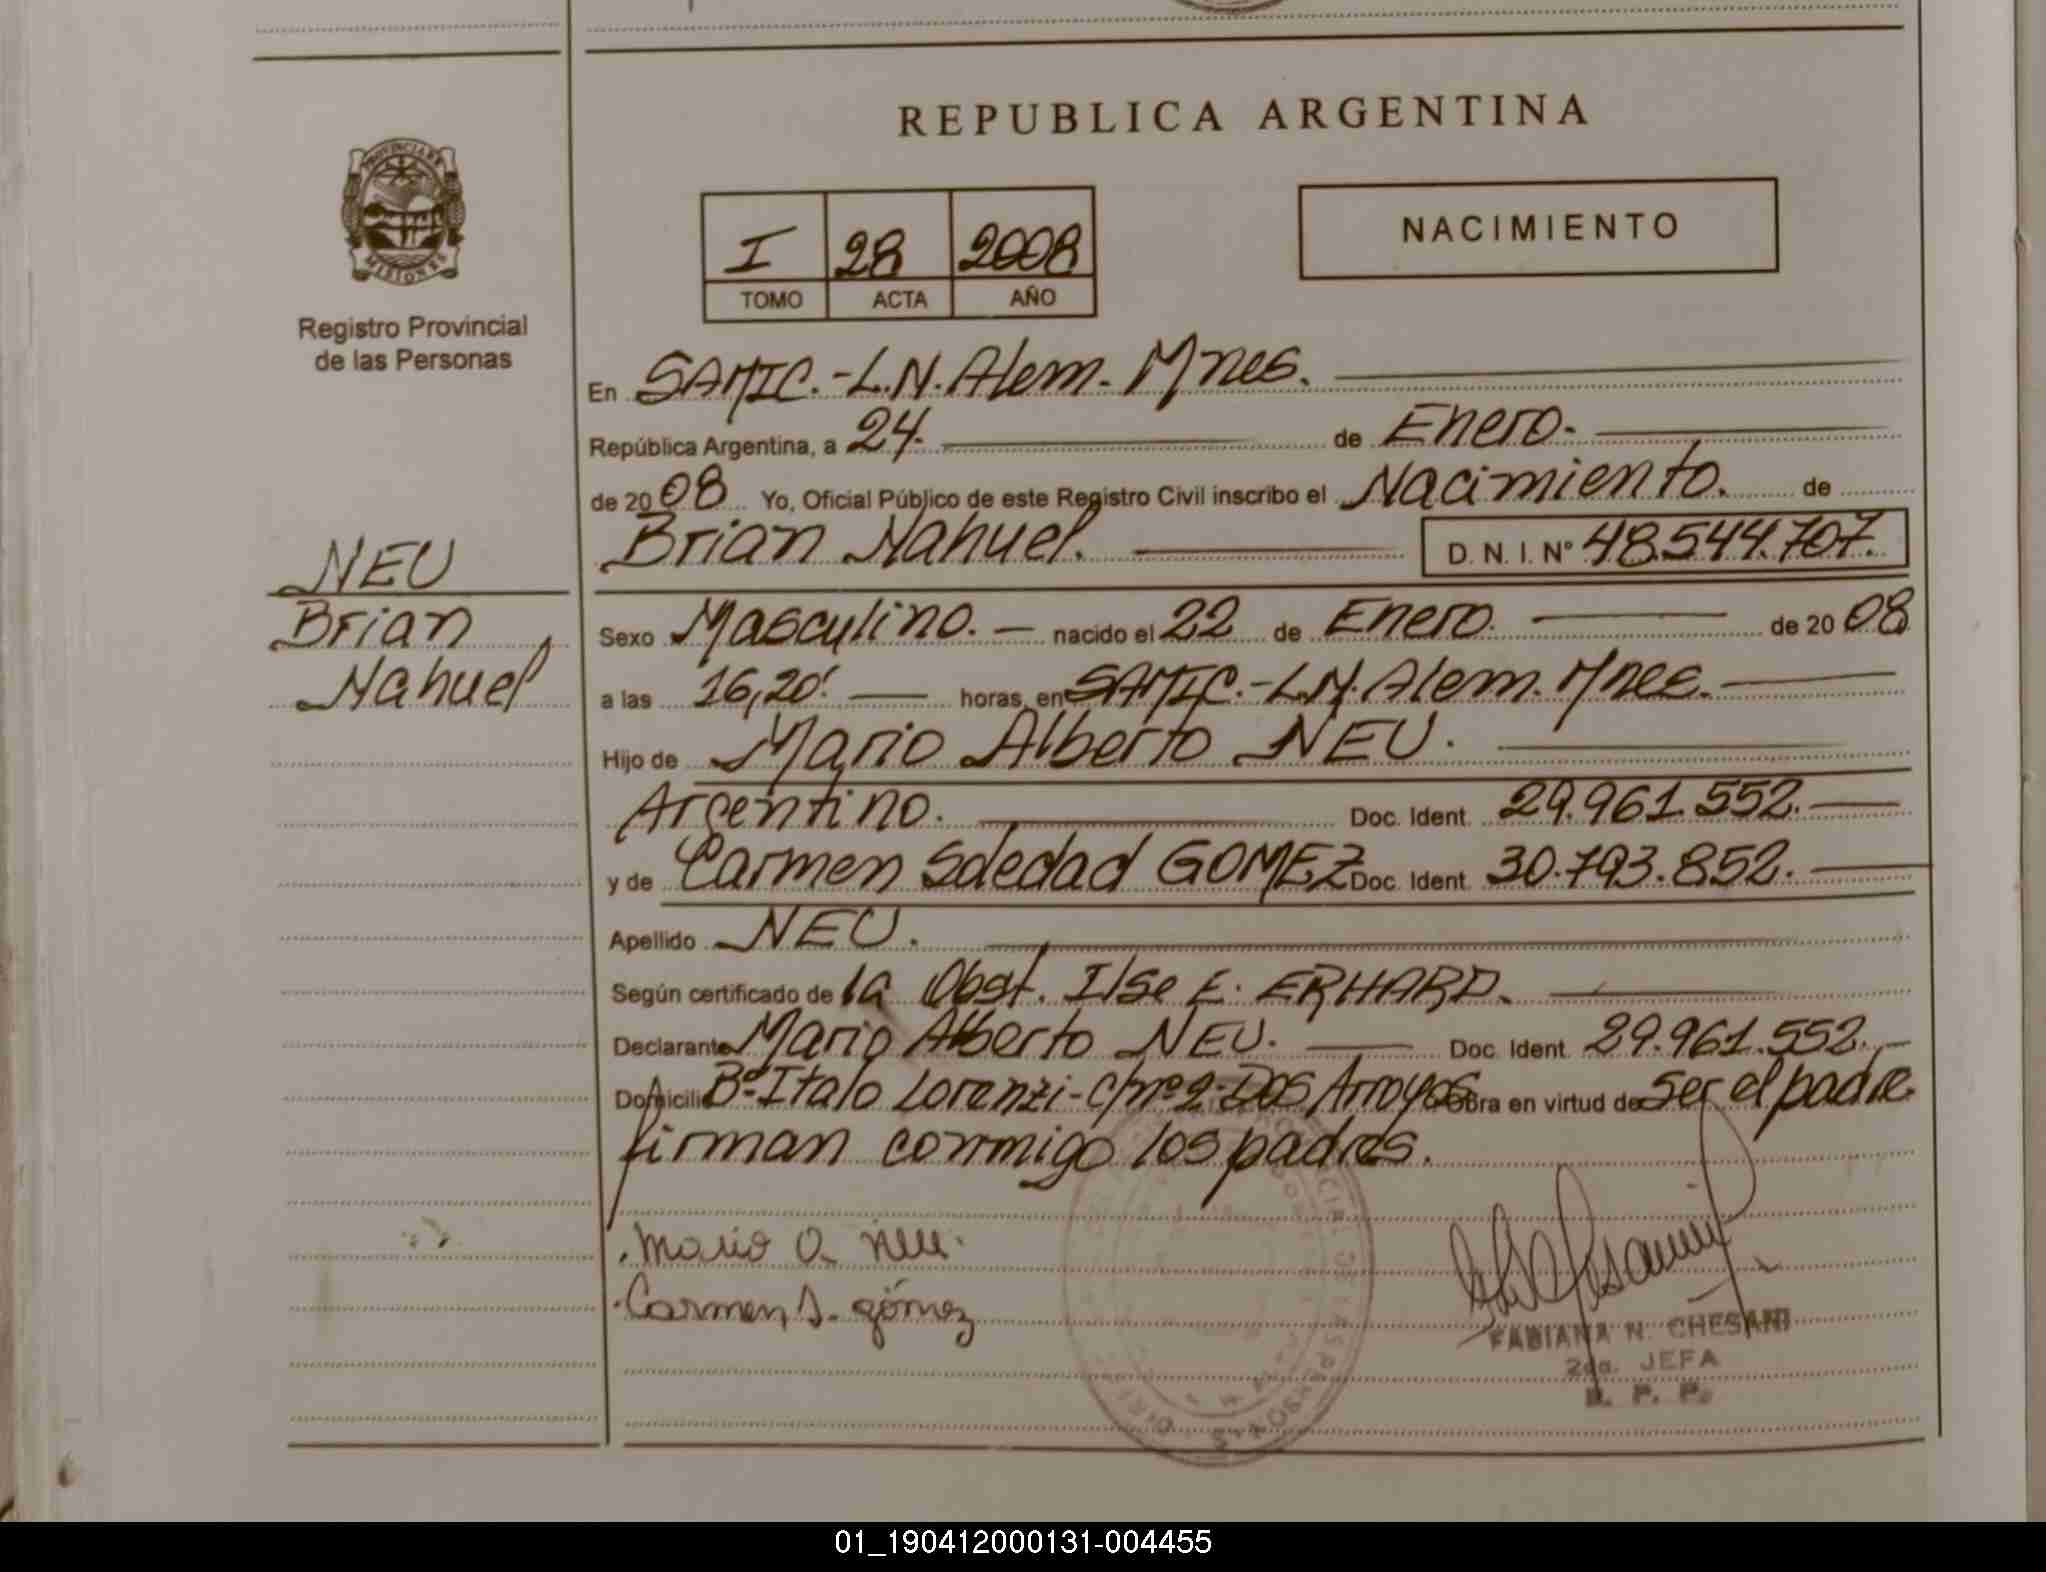 REPUBLICA ARGENTINA
PROVINCIA DE
MISIONES
Registro Provincial
de las Personas
I 28 2008
TOMO ACTA AÑO
NACIMIENTO
En SAMIC.-L.N.Alem. Mnes.
República Argentina, a 24. de Enero.
de 2008 Yo, Oficial Público de este Registro Civil inscribo el Nacimiento. de
Brian Nahuel. D. N. I. Nº 48.544.707.
NEU
Brian
Nahuel
Sexo Masculino. nacido el 22 de Enero. de 2008
a las 16,20' horas, en SAMIC.-L.N. Alem. Mnes.
Hijo de Mario Alberto NEU.
Argentino. Doc. Ident. 29.961.552.
y de Carmen Soledad GOMEZ Doc. Ident. 30.793.852.
Apellido NEU.
Según certificado de la Obst. Ilse E. ERHARD.
Declarante Mario Alberto NEU. Doc. Ident. 29.961.552.
Domicilio Bº Italo Lorenzi - C/nº 2 - Dos Arroyos Obra en virtud de ser el padre
firman conmigo los padres.
Mario A. Neu.
Carmen S. gómez
FABIANA N. CHESANI
2da. JEFA
R. P. P.
01_190412000131-004455